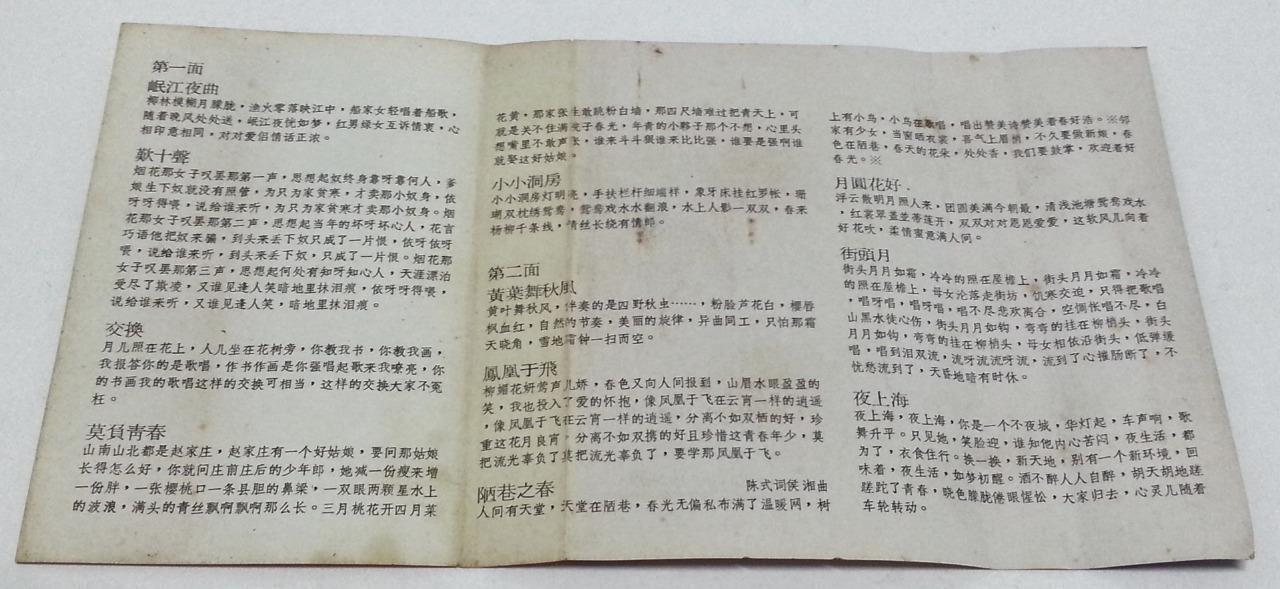 第一面
岷江夜曲
椰林模糊月朦胧，渔火零落映江中，船家女轻唱着船歌，
随着晚风处处送，岷江夜恍如梦，红男绿女互诉情衷，心
相印意相同，对对爱侣情话正浓。
歎十聲
烟花那女子叹罢那第一声，思想起奴终身靠呀靠何人，爹
娘生下奴就没有照管，为只为家贫寒，才卖那小奴身，依
呀呀得喂，说给谁来听，为只为家贫寒才卖那小奴身。烟
花那女子叹罢那第二声，思想起当年的坏呀坏心人，花言
巧语他把奴来骗，到头来丢下奴只成了一片恨，依呀依呀
喂，说给谁来听，到头来丢下奴，只成了一片恨。烟花那
女子叹罢那第三声，思想起何处有知呀知心人，天涯漂泊
受尽了欺凌，又谁见逢人笑暗地里抹泪痕，依呀呀得喂，
说给谁来听，又谁见逢人笑，暗地里抹泪痕。
交換
月儿照在花上，人儿坐在花树旁，你教我书，你教我画，
我报答你的是歌唱，作书作画是你强唱起歌来我嘹亮，你
的书画我的歌唱这样的交换可相当，这样的交换大家不冤
枉。
莫負靑春
山南山北都是赵家庄，赵家庄有一个好姑娘，要问那姑娘
长得怎么好，你就问庄前庄后的少年郎，她减一份瘦来增
一份胖，一张樱桃口一条县胆的鼻梁，一双眼两颗星水上
的波浪，满头的青丝飘啊飘啊那么长。三月桃花开四月菜
花黄，那家张生敢跳粉白墙，那四尺墙难过把青天上，可
就是关不住满院子春光，年青的小夥子那个不想，心里头
想嘴里不敢声张，谁来斗斗狠谁来比比强，谁要是强啊谁
就娶这好姑娘。
小小洞房
小小洞房灯明亮，手扶栏杆细端样，象牙床挂红罗帐，珊
瑚双枕绣鸳鸯，鸳鸯戏水水翻浪，水上人影一双双，春来
杨柳千条线，情丝长绕有情郎。
第二面
黃葉舞秋風
黄叶舞秋风，伴奏的是四野秋虫……，粉脸芦花白，樱唇
枫血红，自然的节奏，美丽的旋律，异曲同工，只怕那霜
天晓角，雪地霜钟一扫而空。
鳳凰于飛
柳媚花妍莺声儿娇，春色又向人间报到，山眉水眼盈盈的
笑，我也投入了爱的怀抱，像凤凰于飞在云宵一样的逍遥
，像凤凰于飞在云宵一样的逍遥，分离不如双栖的好，珍
重这花月良宵，分离不如双携的好且珍惜这青春年少，莫
把流光辜负了莫把流光辜负了，要学那凤凰于飞。
陋巷之春 陈式词侯湘曲
人间有天堂，天堂在陋巷，春光无偏私布满了温暖网，树
上有小鸟，小鸟在歌唱，唱出赞美诗赞美着春好浩。※邻
家有少女，当窗晒衣裳，喜气上眉梢，不久要做新娘，春
色在陋巷，春天的花朵，处处香，我们要鼓掌，欢迎着好
春光。※
月圓花好
浮云散明月照人来，团圆美满今朝最，清浅池塘鸳鸯戏水
，红裳翠盖並蒂莲开，双双对对恩恩爱爱，这软风儿向着
好花吹，柔情蜜意满人间。
街頭月
街头月月如霜，冷冷的照在屋檐上，街头月月如霜，冷冷
的照在屋檐上，母女沦落走街坊，饥寒交迫，只得把歌唱
，唱呀唱，唱呀唱，唱不尽悲欢离合，空惆怅唱不尽，白
山黑水徒心伤，街头月月如钩，弯弯的挂在柳梢头，街头
月月如钩，弯弯的挂在柳梢头，母女相依沿街头，低弹缓
唱，唱到泪双流，流呀流流呀流，流到了心摧肠断了，不
忧愁流到了，天昏地暗有时休。
夜上海
夜上海，夜上海，你是一个不夜城，华灯起，车声响，歌
舞升平。只见她，笑脸迎，谁知他内心苦闷，夜生活，都
为了，衣食住行。换一换，新天地，别有一个新环境，回
味着，夜生活，如梦初醒。酒不醉人人自醉，胡天胡地蹉
蹉跎了青春，晓色朦胧倦眼惺忪，大家归去，心灵儿随着
车轮转动。